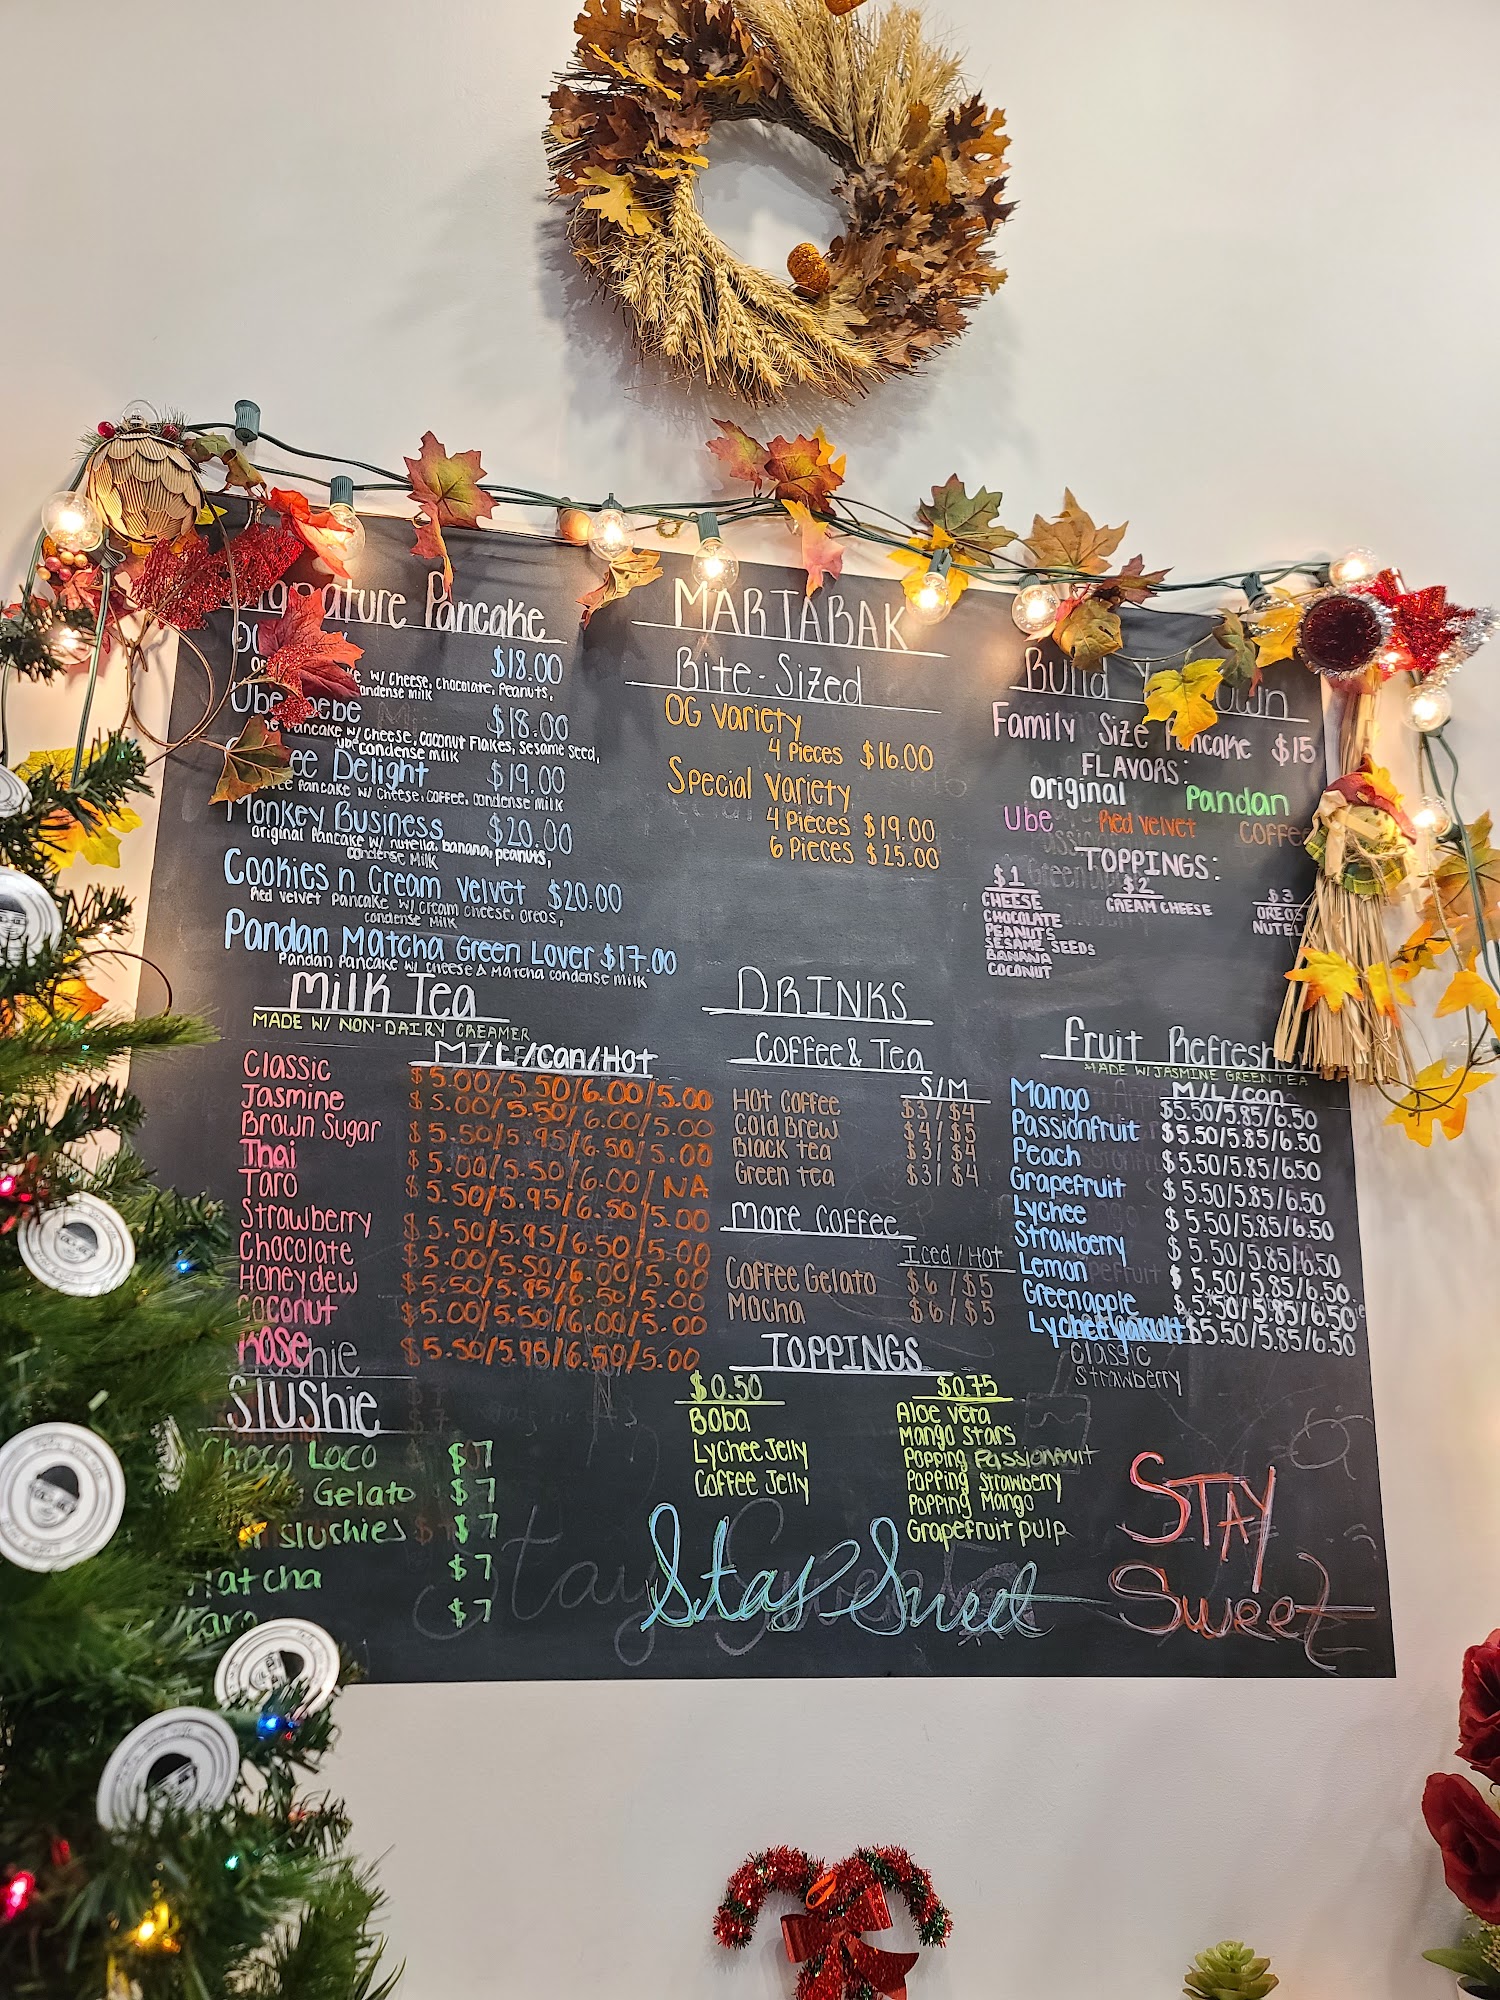 MARTABAK
Signature Pancake
$18.00
W/ Cheese, Chocolate, Peanuts,
condense milk
Ube
$18.00
Pancake w/ cheese, coconut Flakes, Sesame Seed,
ube condense milk
Delight $19.00
Pancake w/ Cheese, coffee, condense milk
Monkey Business $20.00
original Pancake w/ nutella, banana, peanuts,
condense milk
Cookies n Cream Velvet $20.00
Red velvet Pancake w/ cream cheese, oreos,
condense milk
Pandan Matcha Green Lover $17.00
Pandan Pancake w/ cheese & Matcha condense milk
Bite-Sized
OG Variety
4 Pieces $16.00
Special Variety
4 Pieces $19.00
6 Pieces $25.00
Build Own
Family Size Pancake $15
FLAVORS:
Original Pandan
Ube Red velvet Coffee
TOPPINGS:
$1
CHEESE
CHOCOLATE
PEANUTS
SESAME SEEDS
BANANA
COCONUT
$2
CREAM CHEESE
$3
OREOS
Milk Tea
MADE W/ NON-DAIRY CREAMER
M/L/Can/Hot
Classic $5.00/5.50/6.00/5.00
Jasmine $5.00/5.50/6.00/5.00
Brown Sugar $5.50/5.95/6.50/5.00
Thai $5.00/5.50/6.00/NA
Taro $5.50/5.95/6.50/5.00
Strawberry $5.50/5.95/6.50/5.00
Chocolate $5.00/5.50/6.00/5.00
Honeydew $5.50/5.95/6.50/5.00
Coconut $5.00/5.50/6.00/5.00
Rose $5.50/5.95/6.50/5.00
Slushie
Choco Loco $7
Gelato $7
slushies $7
Matcha $7
Taro $7
DRINKS
Coffee & Tea
S/M
Hot Coffee $3/$4
Cold Brew $4/$5
Black tea $3/$4
Green tea $3/$4
More Coffee
Iced/Hot
Coffee Gelato $6/$5
Mocha $6/$5
TOPPINGS
$0.50
Boba
Lychee Jelly
Coffee Jelly
$0.75
Aloe vera
Mango Stars
Popping Passionfruit
Popping Strawberry
Popping Mango
Grapefruit pulp
Fruit
MADE W/ JASMINE GREEN TEA
M/L/can
Mango $5.50/5.85/6.50
Passionfruit $5.50/5.85/6.50
Peach $5.50/5.85/6.50
Grapefruit $5.50/5.85/6.50
Lychee $5.50/5.85/6.50
Strawberry $5.50/5.85/6.50
Lemon $5.50/5.85/6.50
Greenapple $5.50/5.85/6.50
Lychee yakult $5.50/5.85/6.50
Classic
Strawberry
Stay Sweet
STAY
Sweet